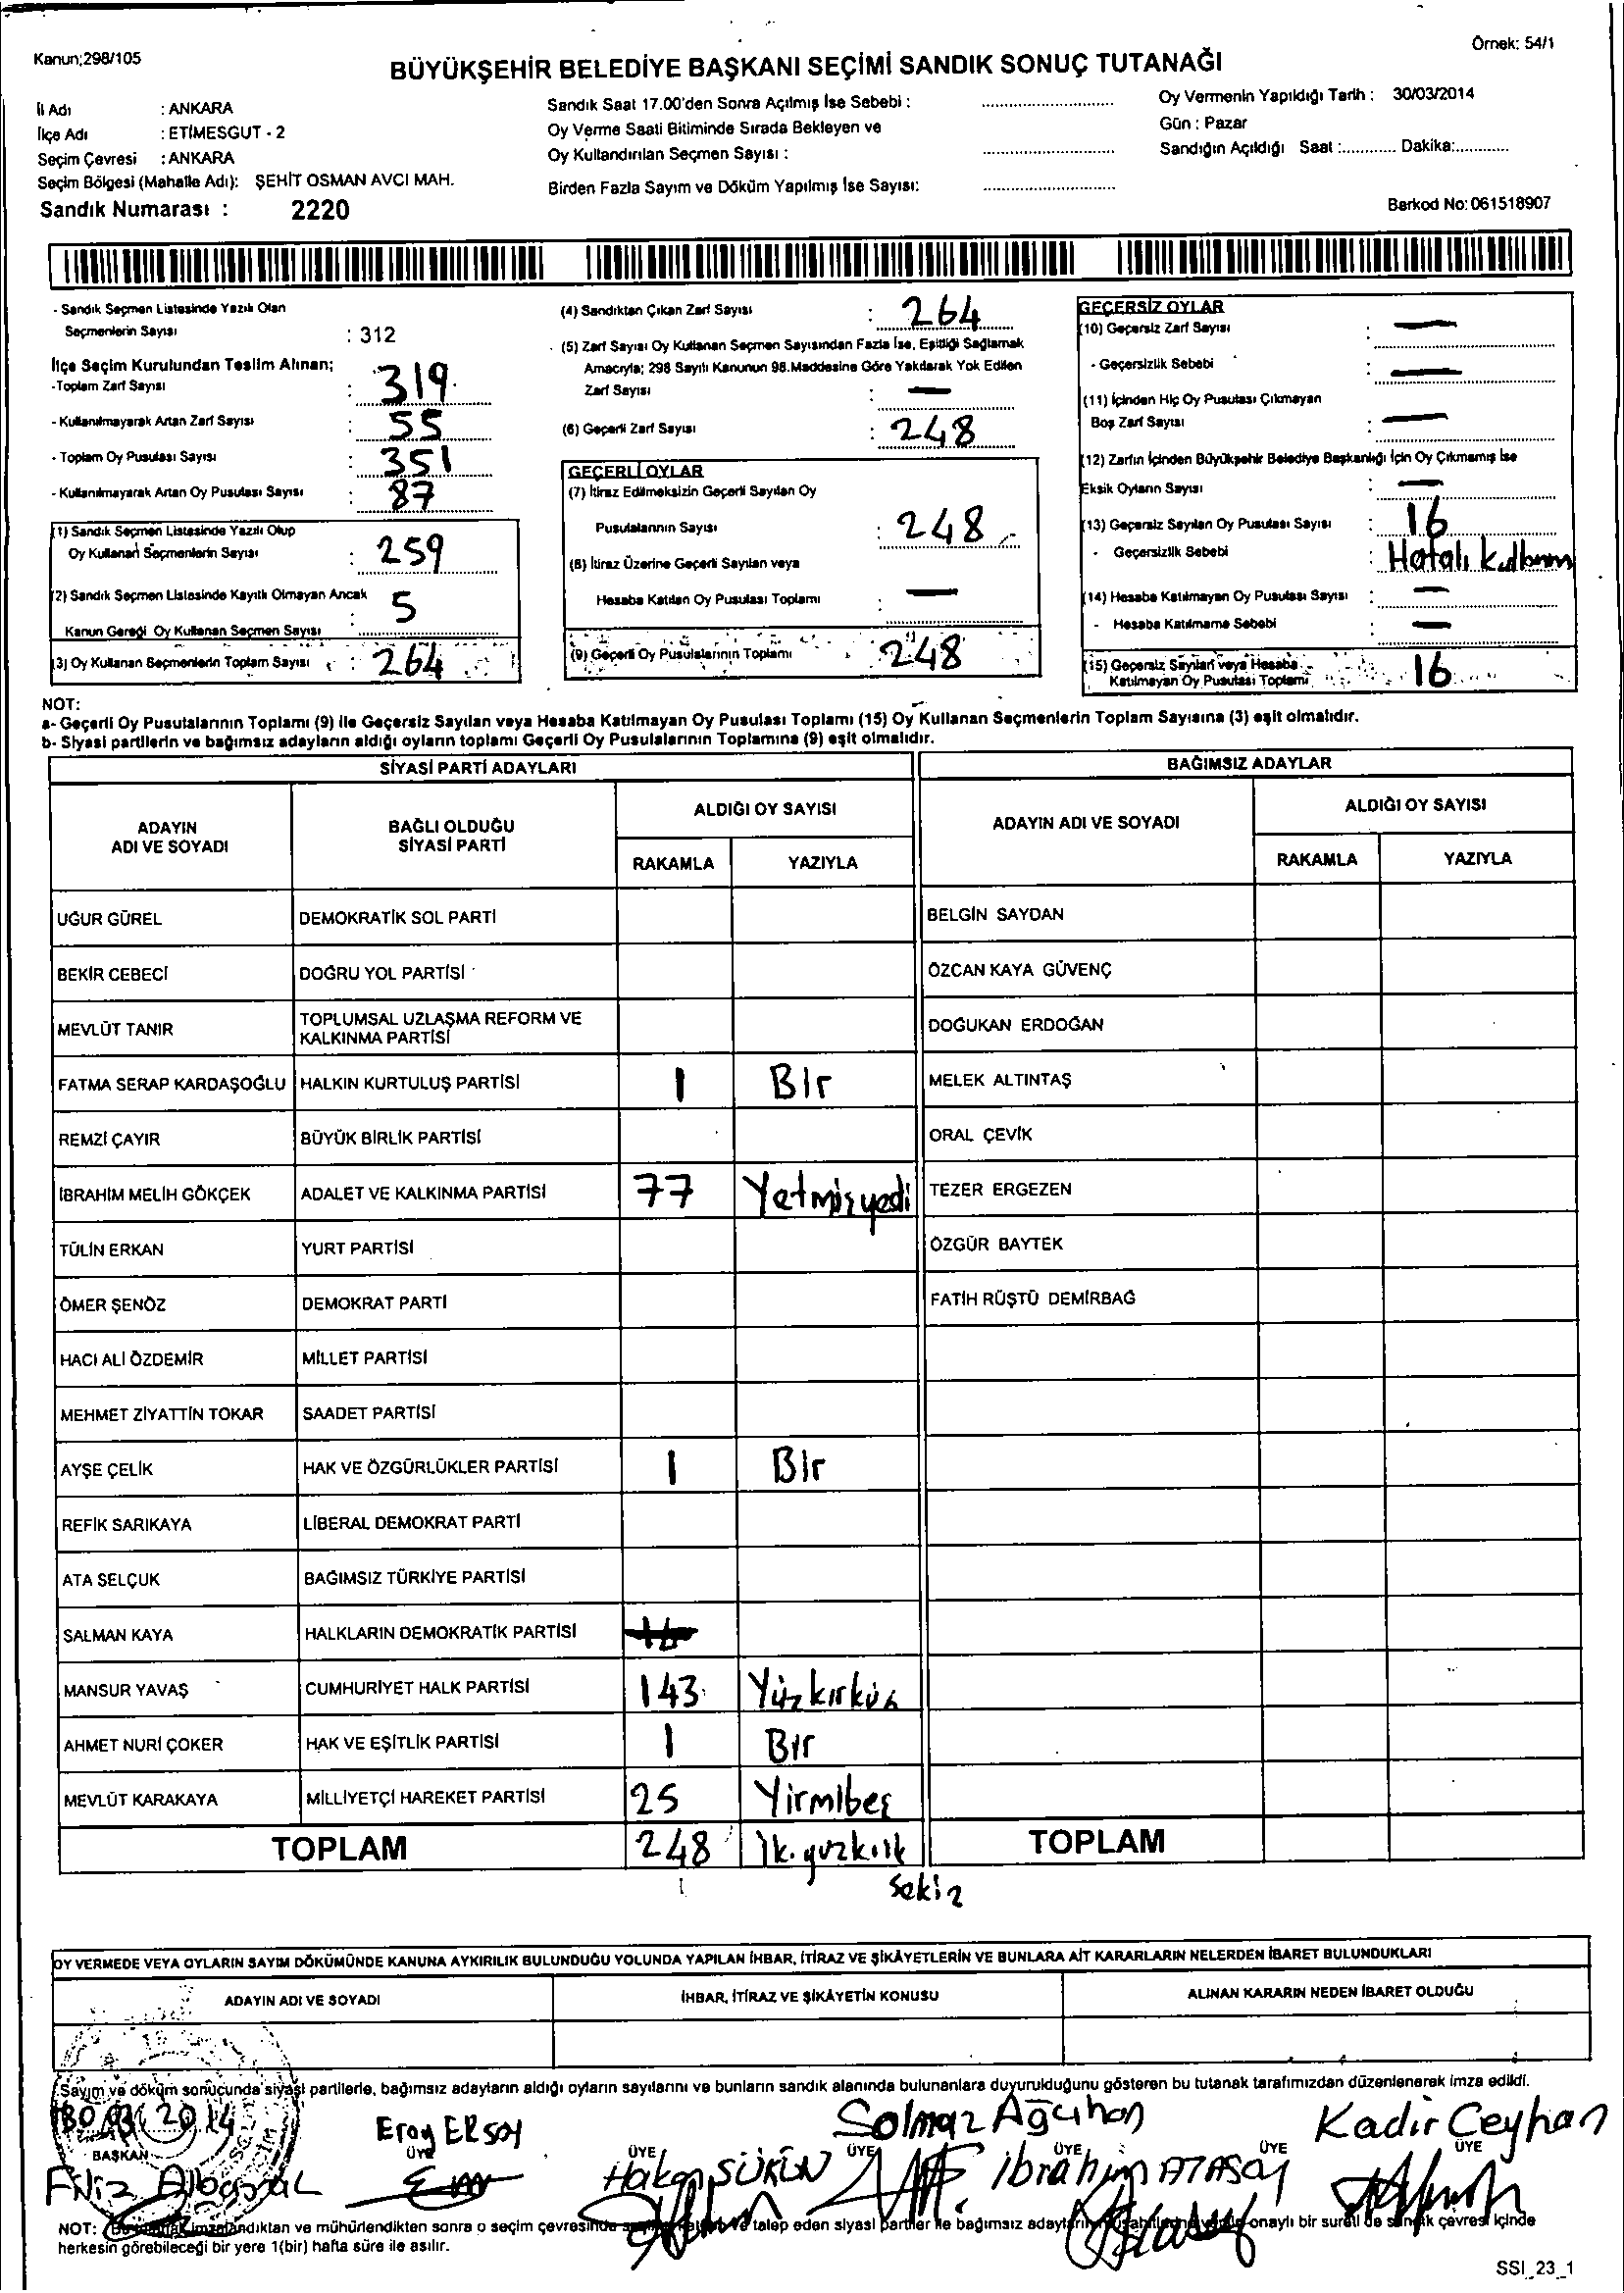 Kanun;298/105
Örnek: 54/1
BÜYÜKŞEHİR BELEDİYE BAŞKANI SEÇİMİ SANDIK SONUÇ TUTANAĞI
İl Adı : ANKARA
İlçe Adı : ETİMESGUT - 2
Seçim Çevresi : ANKARA
Seçim Bölgesi (Mahalle Adı): ŞEHİT OSMAN AVCI MAH.
Sandık Numarası : 2220
Sandık Saat 17.00'den Sonra Açılmış İse Sebebi :
Oy Verme Saati Bitiminde Sırada Bekleyen ve
Oy Kullandırılan Seçmen Sayısı :
Birden Fazla Sayım ve Döküm Yapılmış İse Sayısı:
Oy Vermenin Yapıldığı Tarih : 30/03/2014
Gün : Pazar
Sandığın Açıldığı Saat :............ Dakika:............
Barkod No: 061518907
- Sandık Seçmen Listesinde Yazılı Olan
Seçmenlerin Sayısı : 312
İlçe Seçim Kurulundan Teslim Alınan;
-Toplam Zarf Sayısı : 319
- Kullanılmayarak Artan Zarf Sayısı : 55
- Toplam Oy Pusulası Sayısı : 351
- Kullanılmayarak Artan Oy Pusulası Sayısı : 87
(1) Sandık Seçmen Listesinde Yazılı Olup
Oy Kullanan Seçmenlerin Sayısı : 259
(2) Sandık Seçmen Listesinde Kayıtlı Olmayan Ancak
Kanun Gereği Oy Kullanan Seçmen Sayısı : 5
(3) Oy Kullanan Seçmenlerin Toplam Sayısı : 264
(4) Sandıktan Çıkan Zarf Sayısı : 264
(5) Zarf Sayısı Oy Kullanan Seçmen Sayısından Fazla İse, Eşitliği Sağlamak
Amacıyla; 298 Sayılı Kanunun 98.Maddesine Göre Yakılarak Yok Edilen
Zarf Sayısı : —
(6) Geçerli Zarf Sayısı : 248
GEÇERLİ OYLAR
(7) İtiraz Edilmeksizin Geçerli Sayılan Oy
Pusulalarının Sayısı : 248
(8) İtiraz Üzerine Geçerli Sayılan veya
Hesaba Katılan Oy Pusulası Toplamı : —
(9) Geçerli Oy Pusulalarının Toplamı : 248
GEÇERSİZ OYLAR
(10) Geçersiz Zarf Sayısı : —
- Geçersizlik Sebebi : —
(11) İçinden Hiç Oy Pusulası Çıkmayan
Boş Zarf Sayısı : —
(12) Zarfın İçinden Büyükşehir Belediye Başkanlığı İçin Oy Çıkmamış İse
Eksik Oyların Sayısı : —
(13) Geçersiz Sayılan Oy Pusulası Sayısı : 16
- Geçersizlik Sebebi : Hatalı
(14) Hesaba Katılmayan Oy Pusulası Sayısı : —
- Hesaba Katılmama Sebebi : —
(15) Geçersiz Sayılan veya Hesaba
Katılmayan Oy Pusulası Toplamı : 16
NOT:
a- Geçerli Oy Pusulalarının Toplamı (9) ile Geçersiz Sayılan veya Hesaba Katılmayan Oy Pusulası Toplamı (15) Oy Kullanan Seçmenlerin Toplam Sayısına (3) eşit olmalıdır.
b- Siyasi partilerin ve bağımsız adayların aldığı oyların toplamı Geçerli Oy Pusulalarının Toplamına (9) eşit olmalıdır.
SİYASİ PARTİ ADAYLARI
BAĞIMSIZ ADAYLAR
ADAYIN ADI VE SOYADI
BAĞLI OLDUĞU SİYASİ PARTİ
ALDIĞI OY SAYISI
RAKAMLA YAZIYLA
ADAYIN ADI VE SOYADI
ALDIĞI OY SAYISI
RAKAMLA YAZIYLA
UĞUR GÜREL DEMOKRATİK SOL PARTİ BELGİN SAYDAN
BEKİR CEBECİ DOĞRU YOL PARTİSİ ÖZCAN KAYA GÜVENÇ
MEVLÜT TANIR TOPLUMSAL UZLAŞMA REFORM VE KALKINMA PARTİSİ DOĞUKAN ERDOĞAN
FATMA SERAP KARDAŞOĞLU HALKIN KURTULUŞ PARTİSİ 1 Bir MELEK ALTINTAŞ
REMZİ ÇAYIR BÜYÜK BİRLİK PARTİSİ ORAL ÇEVİK
İBRAHİM MELİH GÖKÇEK ADALET VE KALKINMA PARTİSİ 77 Yetmişyedi TEZER ERGEZEN
TÜLİN ERKAN YURT PARTİSİ ÖZGÜR BAYTEK
ÖMER ŞENÖZ DEMOKRAT PARTİ FATİH RÜŞTÜ DEMİRBAĞ
HACI ALİ ÖZDEMİR MİLLET PARTİSİ
MEHMET ZİYATTİN TOKAR SAADET PARTİSİ
AYŞE ÇELİK HAK VE ÖZGÜRLÜKLER PARTİSİ 1 Bir
REFİK SARIKAYA LİBERAL DEMOKRAT PARTİ
ATA SELÇUK BAĞIMSIZ TÜRKİYE PARTİSİ
SALMAN KAYA HALKLARIN DEMOKRATİK PARTİSİ
MANSUR YAVAŞ CUMHURİYET HALK PARTİSİ 143 Yüzkırküç
AHMET NURİ ÇOKER HAK VE EŞİTLİK PARTİSİ 1 Bir
MEVLÜT KARAKAYA MİLLİYETÇİ HAREKET PARTİSİ 25 Yirmibeş
TOPLAM 248 İkiyüzkırk TOPLAM
sekiz
OY VERMEDE VEYA OYLARIN SAYIM DÖKÜMÜNDE KANUNA AYKIRILIK BULUNDUĞU YOLUNDA YAPILAN İHBAR, İTİRAZ VE ŞİKÂYETLERİN VE BUNLARA AİT KARARLARIN NELERDEN İBARET BULUNDUKLARI
ADAYIN ADI VE SOYADI İHBAR, İTİRAZ VE ŞİKÂYETİN KONUSU ALINAN KARARIN NEDEN İBARET OLDUĞU
Sayım ve döküm sonucunda siyasi partilerle, bağımsız adayların aldığı oyların sayılarını ve bunların sandık alanında bulunanlara duyurulduğunu gösteren bu tutanak tarafımızdan düzenlenerek imza edildi.
30 03 2014
BAŞKAN ÜYE ÜYE ÜYE ÜYE ÜYE ÜYE
Filiz
Eray ERSOY
Hakan SÜRÜN
Solmaz Ağcıhan
İbrahim ATASOY
Kadir Ceyhan
NOT: Bu tutanak imzalandıktan ve mühürlendikten sonra o seçim çevresinde ve talep eden siyasi partiler ile bağımsız onaylı bir sureti de sandık çevresi içinde
herkesin görebileceği bir yere 1(bir) hafta süre ile asılır.
SSI_23_1